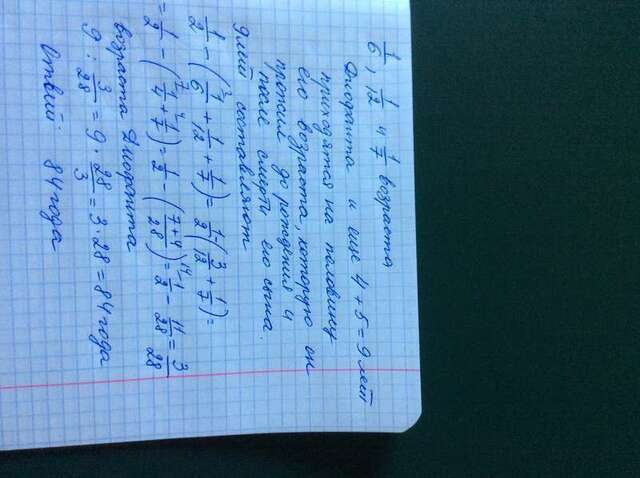 1/6, 1/12 и 1/7 возраста
Диофанта и еще 4+5=9 лет
приходятся на половину
его возраста, которую он
прожил до рождения и
после смерти его сына.
1/2 - (1/6 + 1/12 + 1/7) = 1/2 - (3/12 + 1/7) =
= 1/2 - (1/4 + 1/7) = 1/2 - (7+4/28) = 1/2 - 11/28 = 3/28
9 лет составляют
возраста Диофанта
9 : 3/28 = 9 · 28/3 = 3 · 28 = 84 года
Ответ: 84 года